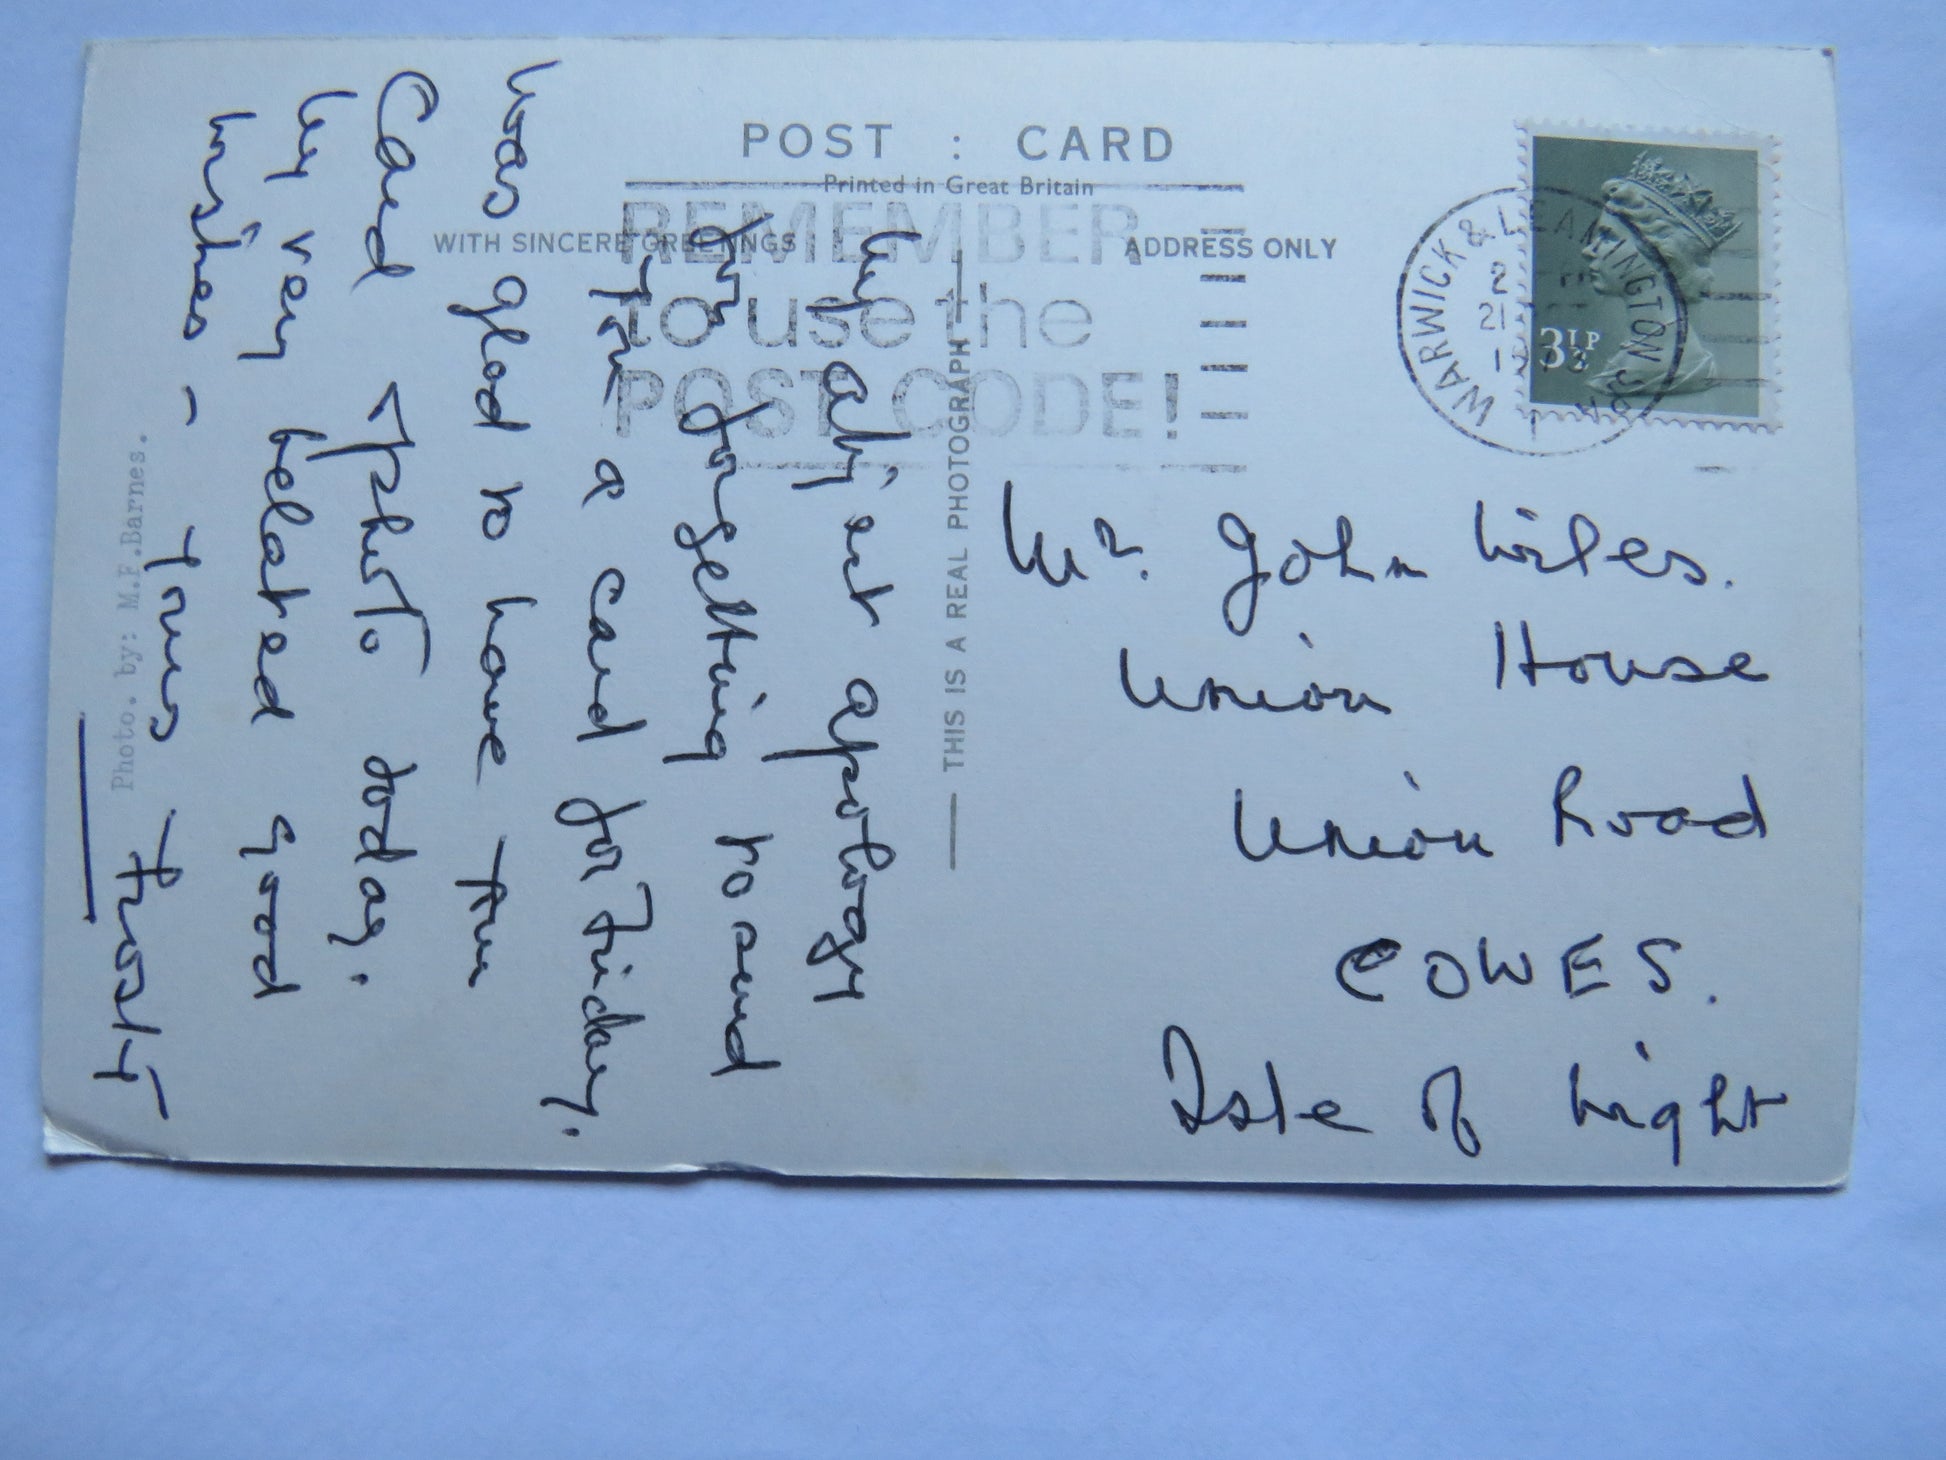 POST : CARD
Printed in Great Britain
WITH SINCERE GREETINGS
ADDRESS ONLY
REMEMBER
to use the
POST CODE!
WARWICK & LEAMINGTON SPA
21
3½P
THIS IS A REAL PHOTOGRAPH
My abject apology
for forgetting to send
you a card for Friday.
Was glad to have the
Card & photo today.
My very belated good
wishes – Yours
Photo. by: M.F.Barnes.
Mr. John Wiles.
Union House
Union Road
COWES.
Isle of Wight